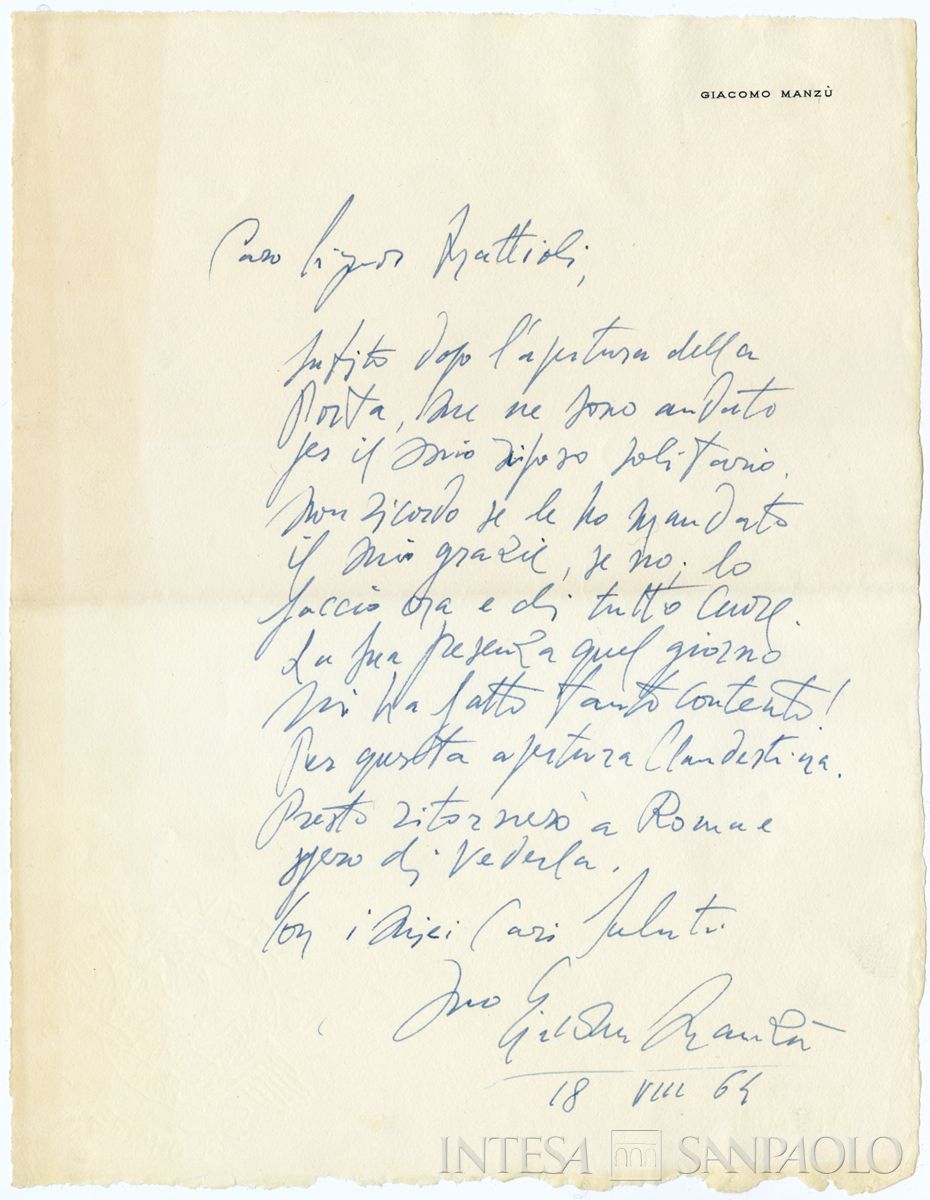 GIACOMO MANZÙ
Caro Signor Mattioli,
subito dopo l'apertura della
Porta, me ne sono andato
per il mio riposo solitario.
non ricordo se le ho mandato
il mio grazie, se no, lo
faccio ora e di tutto cuore.
La sua presenza quel giorno
mi ha fatto tanto contento!
Per questa apertura Clandestina.
Presto ritornerò a Roma e
spero di vederla.
Con i miei Cari Saluti
Suo Giacomo Manzù
18 VIII 64
INTESA SANPAOLO